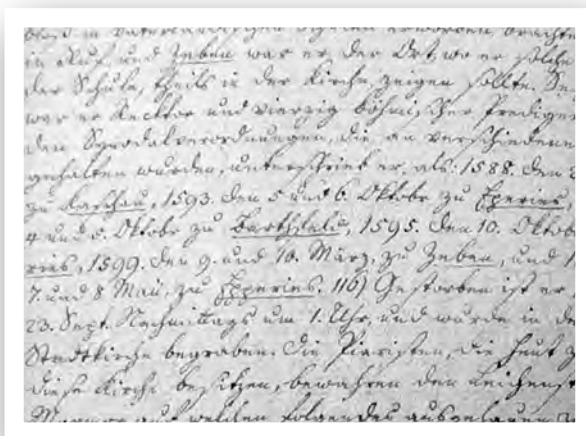 in Ruf, und Zeben war er der Ort, wo er solche
der Schule, theils in der Kirche zeigen sollte. Se
war er Recktor und vierzig böhmischer Prediger
den Synodalverordnungen, die an verschiedene
gehalten wurden, unterschrieb er, als: 1588. den
zu Kaschau, 1593. den 5 und 6. Oktobr zu Eperies,
4 und 5. Oktobr zu Barthfeld, 1595. den 10. Oktob
ries, 1599. den 9. und 10. März, zu Zeben, und 1
7. und 8 Mai, zu Epperies. 116) Gestorben ist er
23. Sept. Nachmittags um 1. Uhr, und wurde in de
Stadtkirche begraben. Die Piaristen, die heut z
diese Kirche besitzen, bewahren den Leichenst
auf welchen folgendes ausgehauen